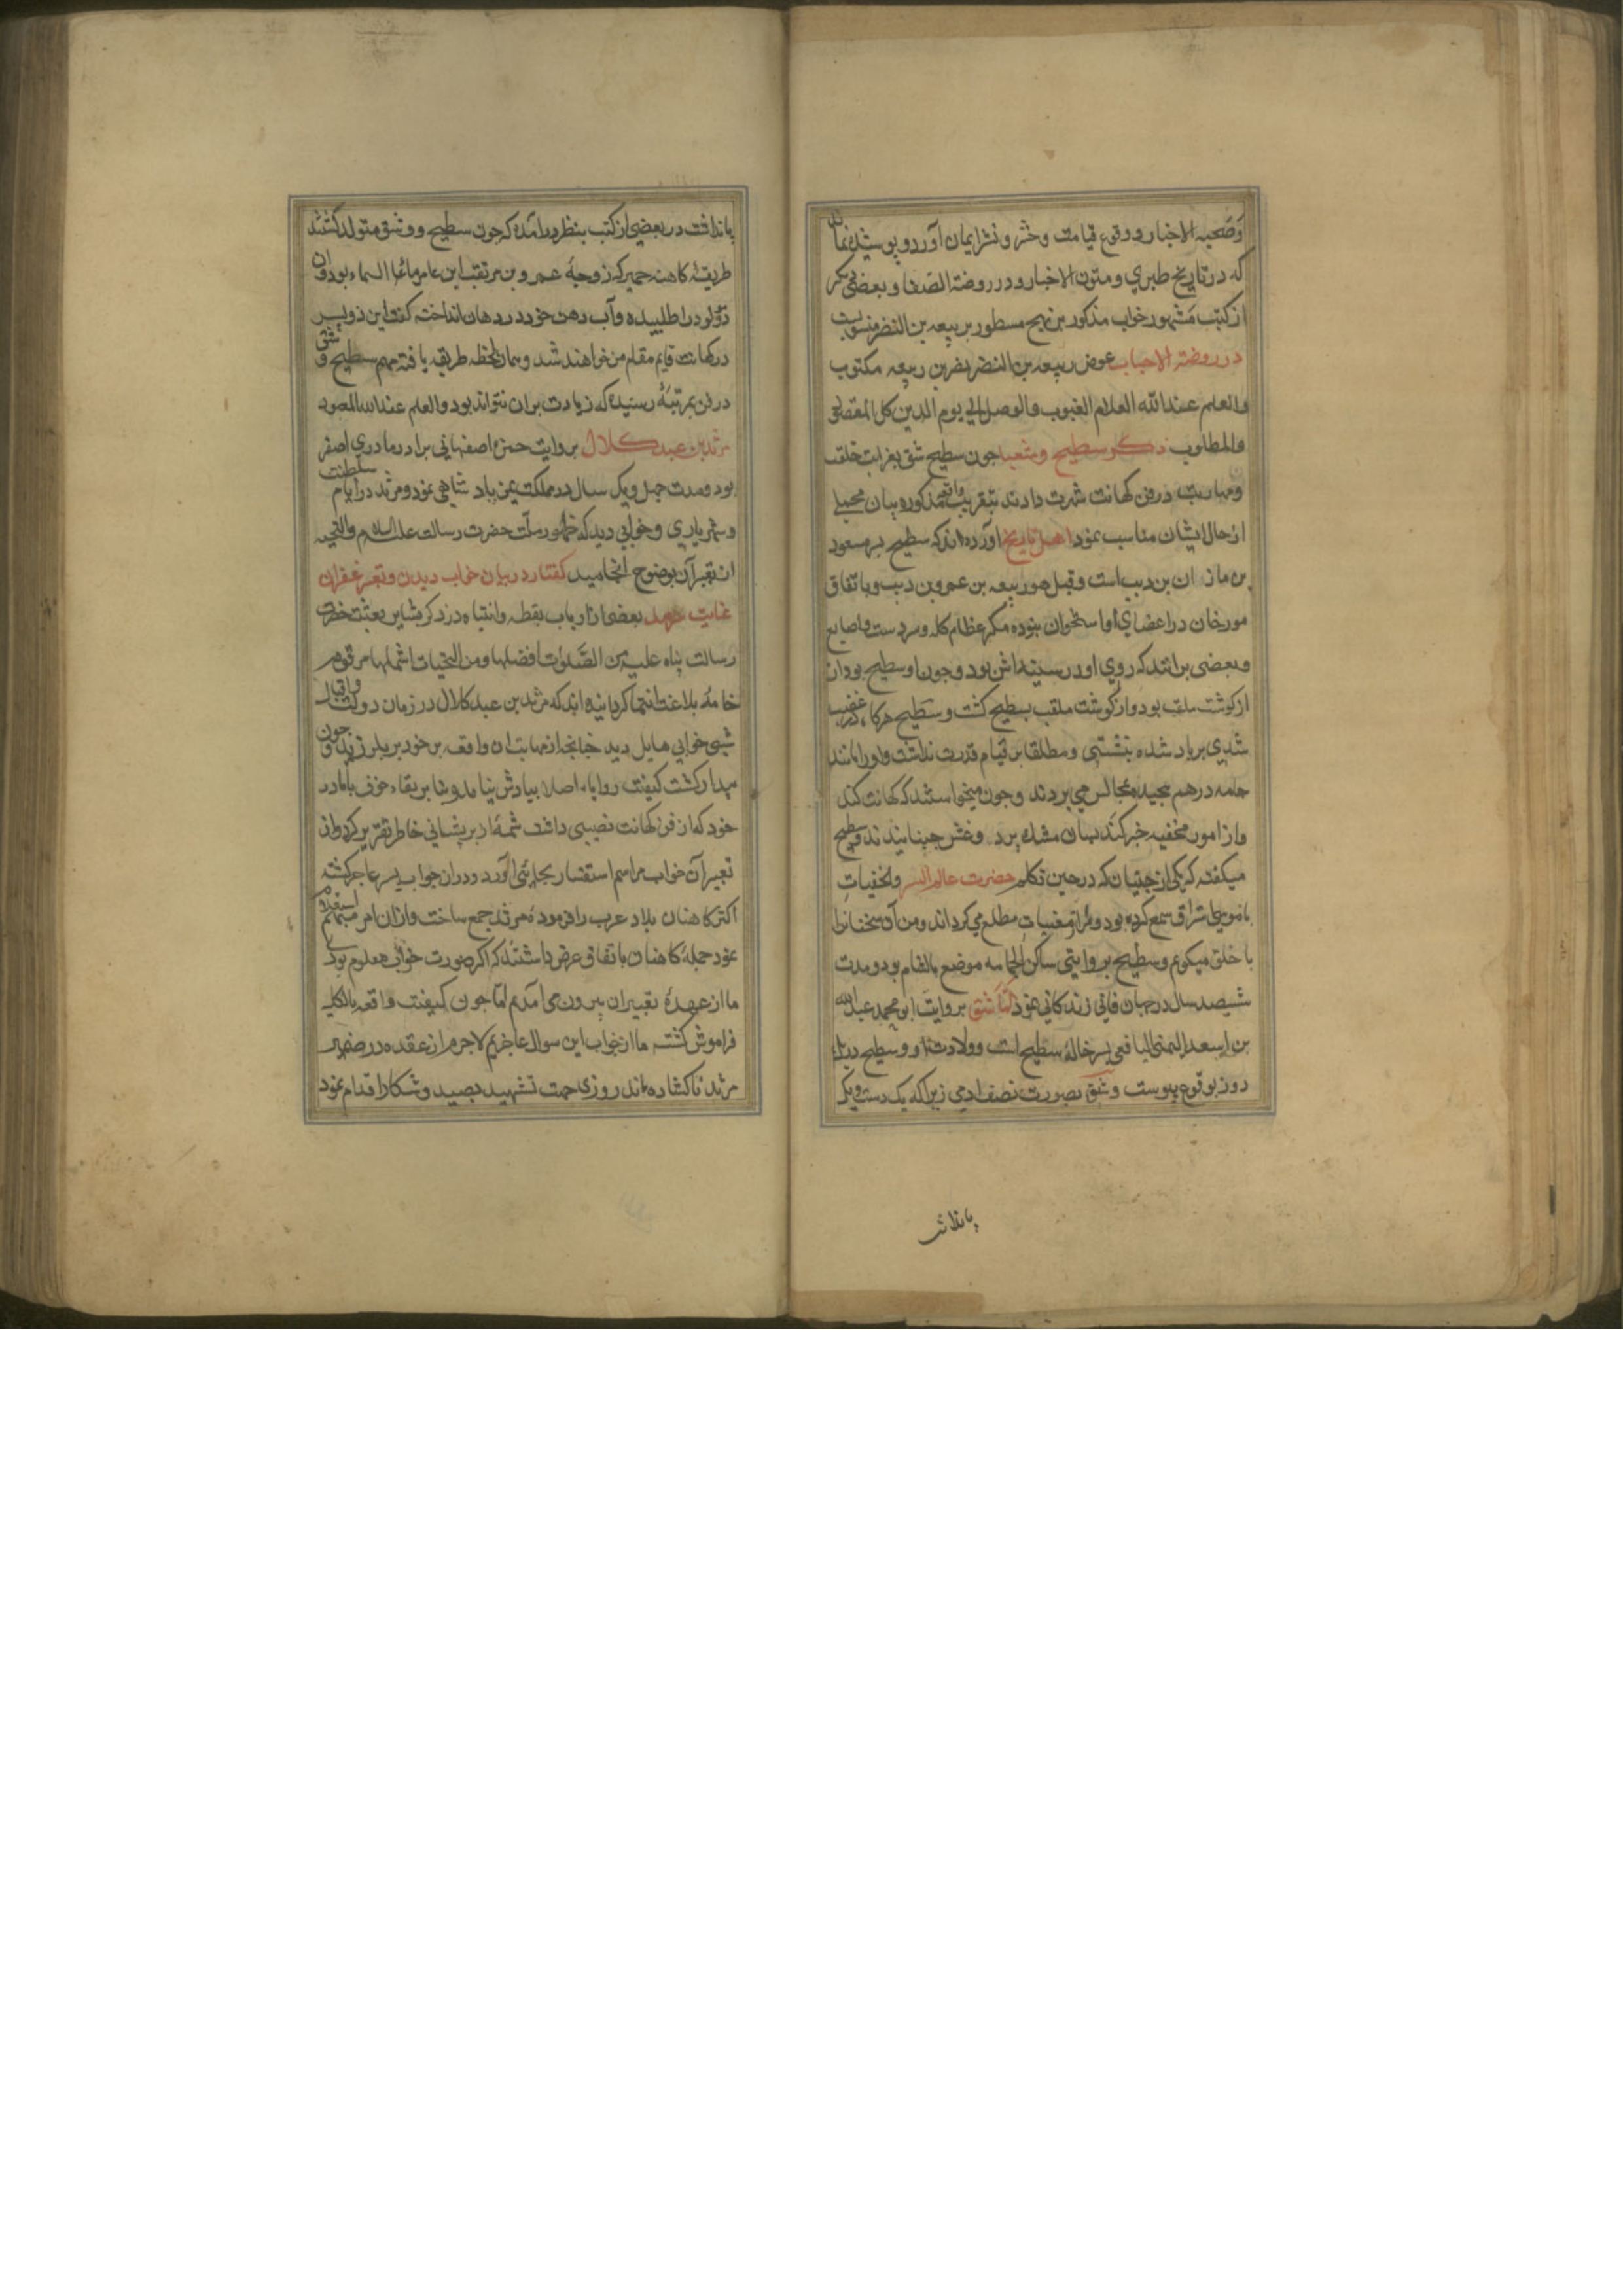 وصحبه الاخبار و وقوع قیامت و حشر و نشر ایمان آورد و پوشیده نماند
که در تاریخ طبری و متون الاخبار و در روضة الصفا و بعضی دیکر
از کتب مشهور خواب مذکور بدین نهج مسطور بربیعه بن النضر منسوبست
در روضة الاحباب عوض ربیعه بن النضر نضر بن ربیعه مکتوب
والعلم عند الله العلام الغیوب والوصل الی یوم الدین کل المقصد
والمطلوب ذکر سطیح و شعبا جون سطیح شق بغرابت خلقت
ومهارت در فن کهانت شهرت دادند بتقریب مذکور و بیان مجملی
از حال ایشان مناسب نمود اهل تاریخ آورده‌اند که سطیح بسر مسعود
بن مازان بن دیب است و قیل هو ربیعه بن عمرو بن دیب و باتفاق
مورخان در اعضای او استخوان نبوده مکر عظام کله و سر دست و اصابع
و بعضی برانند که روی او در سینه اش بود و جون او سطیح بود از
از کوشت ملقب بسطیح کشت و سطیح هرکاه در غضب
شدی بر باد شده بنشستی و مطلقا بر قیام قدرت نداشت و او را مانند
جامه در هم بجیده بمجالس می بردند و جون میخواستند که کهانت کند
و از امور مخفیه خبر کند بسان مشک پر د وغش جنبانیدند و سطیح
میکفت که یکی از جنیان که در حین تکلم حضرت عالم السر والخفیات
با موسی استراق سمع کرده بود مرا از مغیبات مطلع می کرداند و من آن سخنانرا
با خلق میکویم و سطیح بروایتی ساکن الجابیه موضع بالشام بود و مدت
شیصد سال در جهان فانی زندکانی نمود اما شق بروایت ابو محمد عبد الله
بن اسعد الیمنی الیافعی پسر خاله سطیح است و ولادت او و سطیح در یک
روز بوقوع پیوست و شق بصورت نصف ادمی زیرا که یک دست و یک
پانداشت
پانداشت در بعضی از کتب بنظر درامده که جون سطیح و شق متولد کشتند
طریقه کاهنه حمیر که زوجهٔ عمرو بن مزیقیا ابن عامر ماء السماء بود و ان
دو مولود را طلبیده و آب دهن خود در دهان انداخته کفت این دو پسر
در کهانت قایم مقام من خواهند شد و همان لحظه طریقه یافته مهم سطیح و شق
در فن بمرتبهٔ رسیده که زیادت بران نتواند بود والعلم عند الله المعبود
مرثد بن عبد کلال بروایت حمزه اصفهانی برادر مادری اصغر
بود و مدت جهل و یک سال در مملکت یمن باد شاهی نمود و مرثد در ایام سلطنت
و شهریاری و خوابی دید که ظهور رسالت حضرت رسالت علیه السلام والتحیه
از تعبیر آن بوضوح انجامید کفتار در بیان خواب دیدن و تعبیر عفران
بعضی از ارباب یقظه وانتباه در ذکر بشایر بعثت حضرت
رسالت پناه علیه من الصلوات افضلها و من التحیات اشملها مرقوم
خامهٔ بلاغت انتما کردانیده اند که مرثد بن عبد کلال در زمان دولت و اقبال
شبی خوابی هایل دید جنانجه از مهابت ان واقعه بر خود بر بلرزید و جون
بیدار کشت کیفیت رویا اصلا بیادش نیامد و بنا بر بقاء خوف با مادر
خود که از فن کهانت نصیبی داشت شمهٔ از پریشانی خاطر تقریر کرد و از
تعبیر آن خواب مراسم استفسار بجای آورد و دران جواب پسر عاجز کشته
اکثر کاهنان بلاد عرب را فرموده مرثد جمع ساخت و ازان امر مبهم استعلام
نمود جمله کاهنان باتفاق عرض داشتند که اکر صورت خواب معلوم بودی
ما از عهدهٔ تعبیر ان بیرون می امدیم اما جون کیفیت واقعه بالکلیه
فراموش کشته ما از جواب این سوال عاجزیم لاجرم ان عقده در ضمیر
مرثد ناکشاده ماند روزی جهت تشهید بصید و شکار اقدام نمود